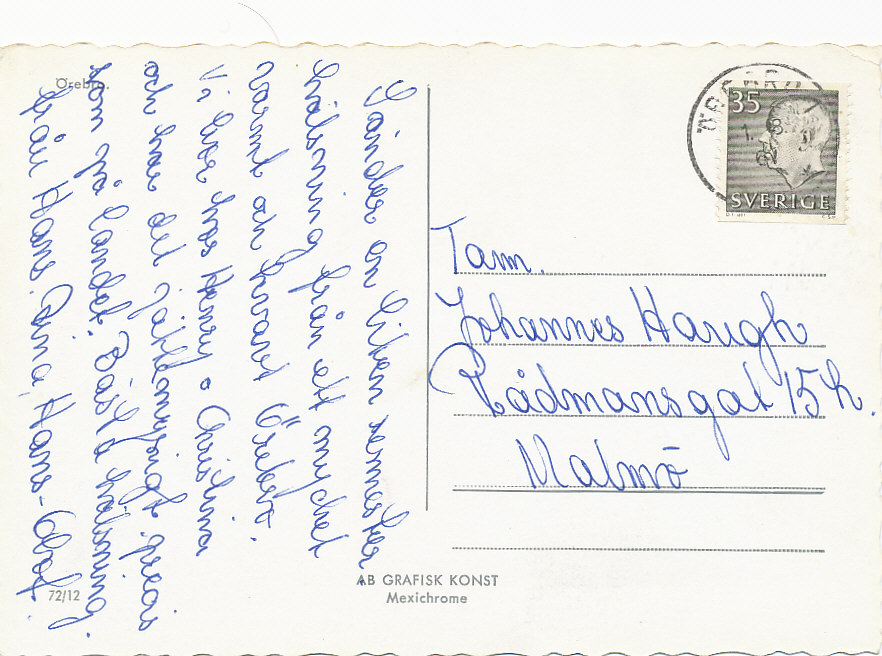 Örebro.
Sänder en liten semester
hälsning från ett mycket
varmt och kvavt Örebro.
Vi bor hos Henry o Christina
och har det jättemysigt precis
som på landet. Bästa hälsning.
från Hans. Gina, Hans-Olof.
35
SVERIGE
Fam.
Johannes Haugh
Rådmansgat 15 h.
Malmö
AB GRAFISK KONST
Mexichrome
72/12